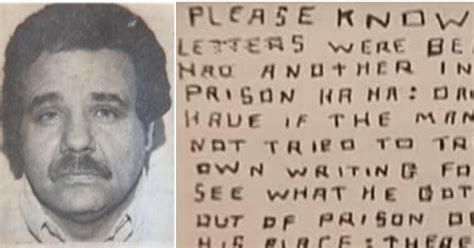 PLEASE KNOW
LETTERS WERE BE
HAD ANOTHER IN
PRISON HA HA: DA
HAVE IF THE MAN
NOT TRIED TO TR
OWN WRITING FO
SEE WHAT HE GOT
OUT OF PRISON O
HIS PLACE: THERE